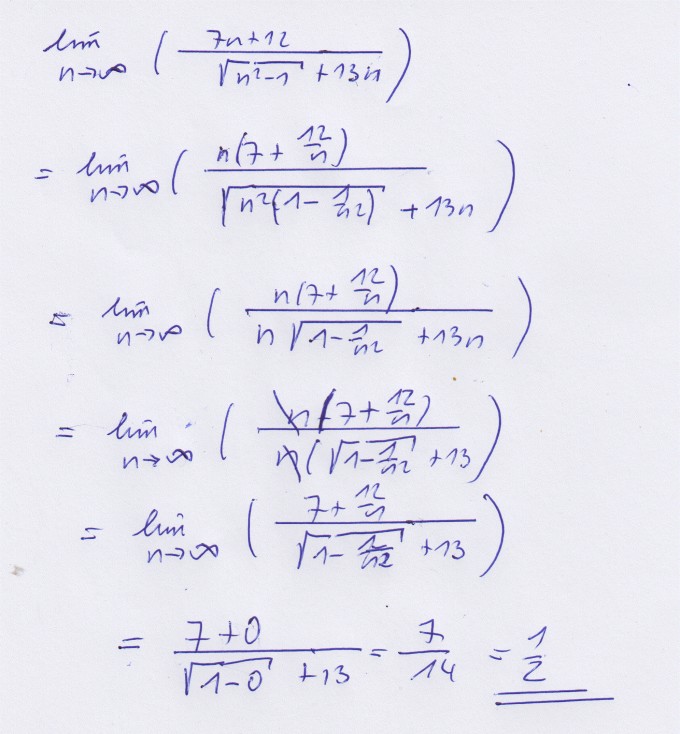 lim n→∞ ( (7n+12) / (√(n²-1) + 13n) )
= lim n→∞ ( n(7 + 12/n) / (√(n²(1 - 1/n²)) + 13n) )
= lim n→∞ ( n(7 + 12/n) / (n √(1 - 1/n²) + 13n) )
= lim n→∞ ( n(7 + 12/n) / (n(√(1 - 1/n²) + 13) )
= lim n→∞ ( (7 + 12/n) / (√(1 - 1/n²) + 13) )
= (7+0) / (√(1-0) + 13) = 7/14 = 1/2